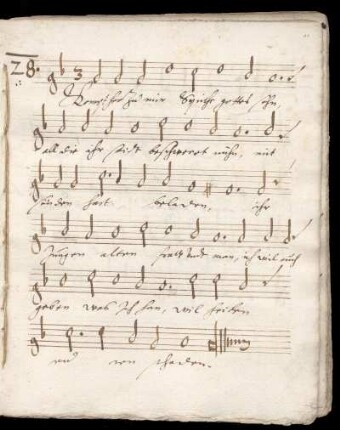 28.
3
Kompt her zu mir spricht gottes Sohn,
all die ihr seidt beschweret nuhn, mit
sünden hart beladen, ihr
jungen alten frawen und man, ich wil euch
geben was ich han, wil heilen
schaden.